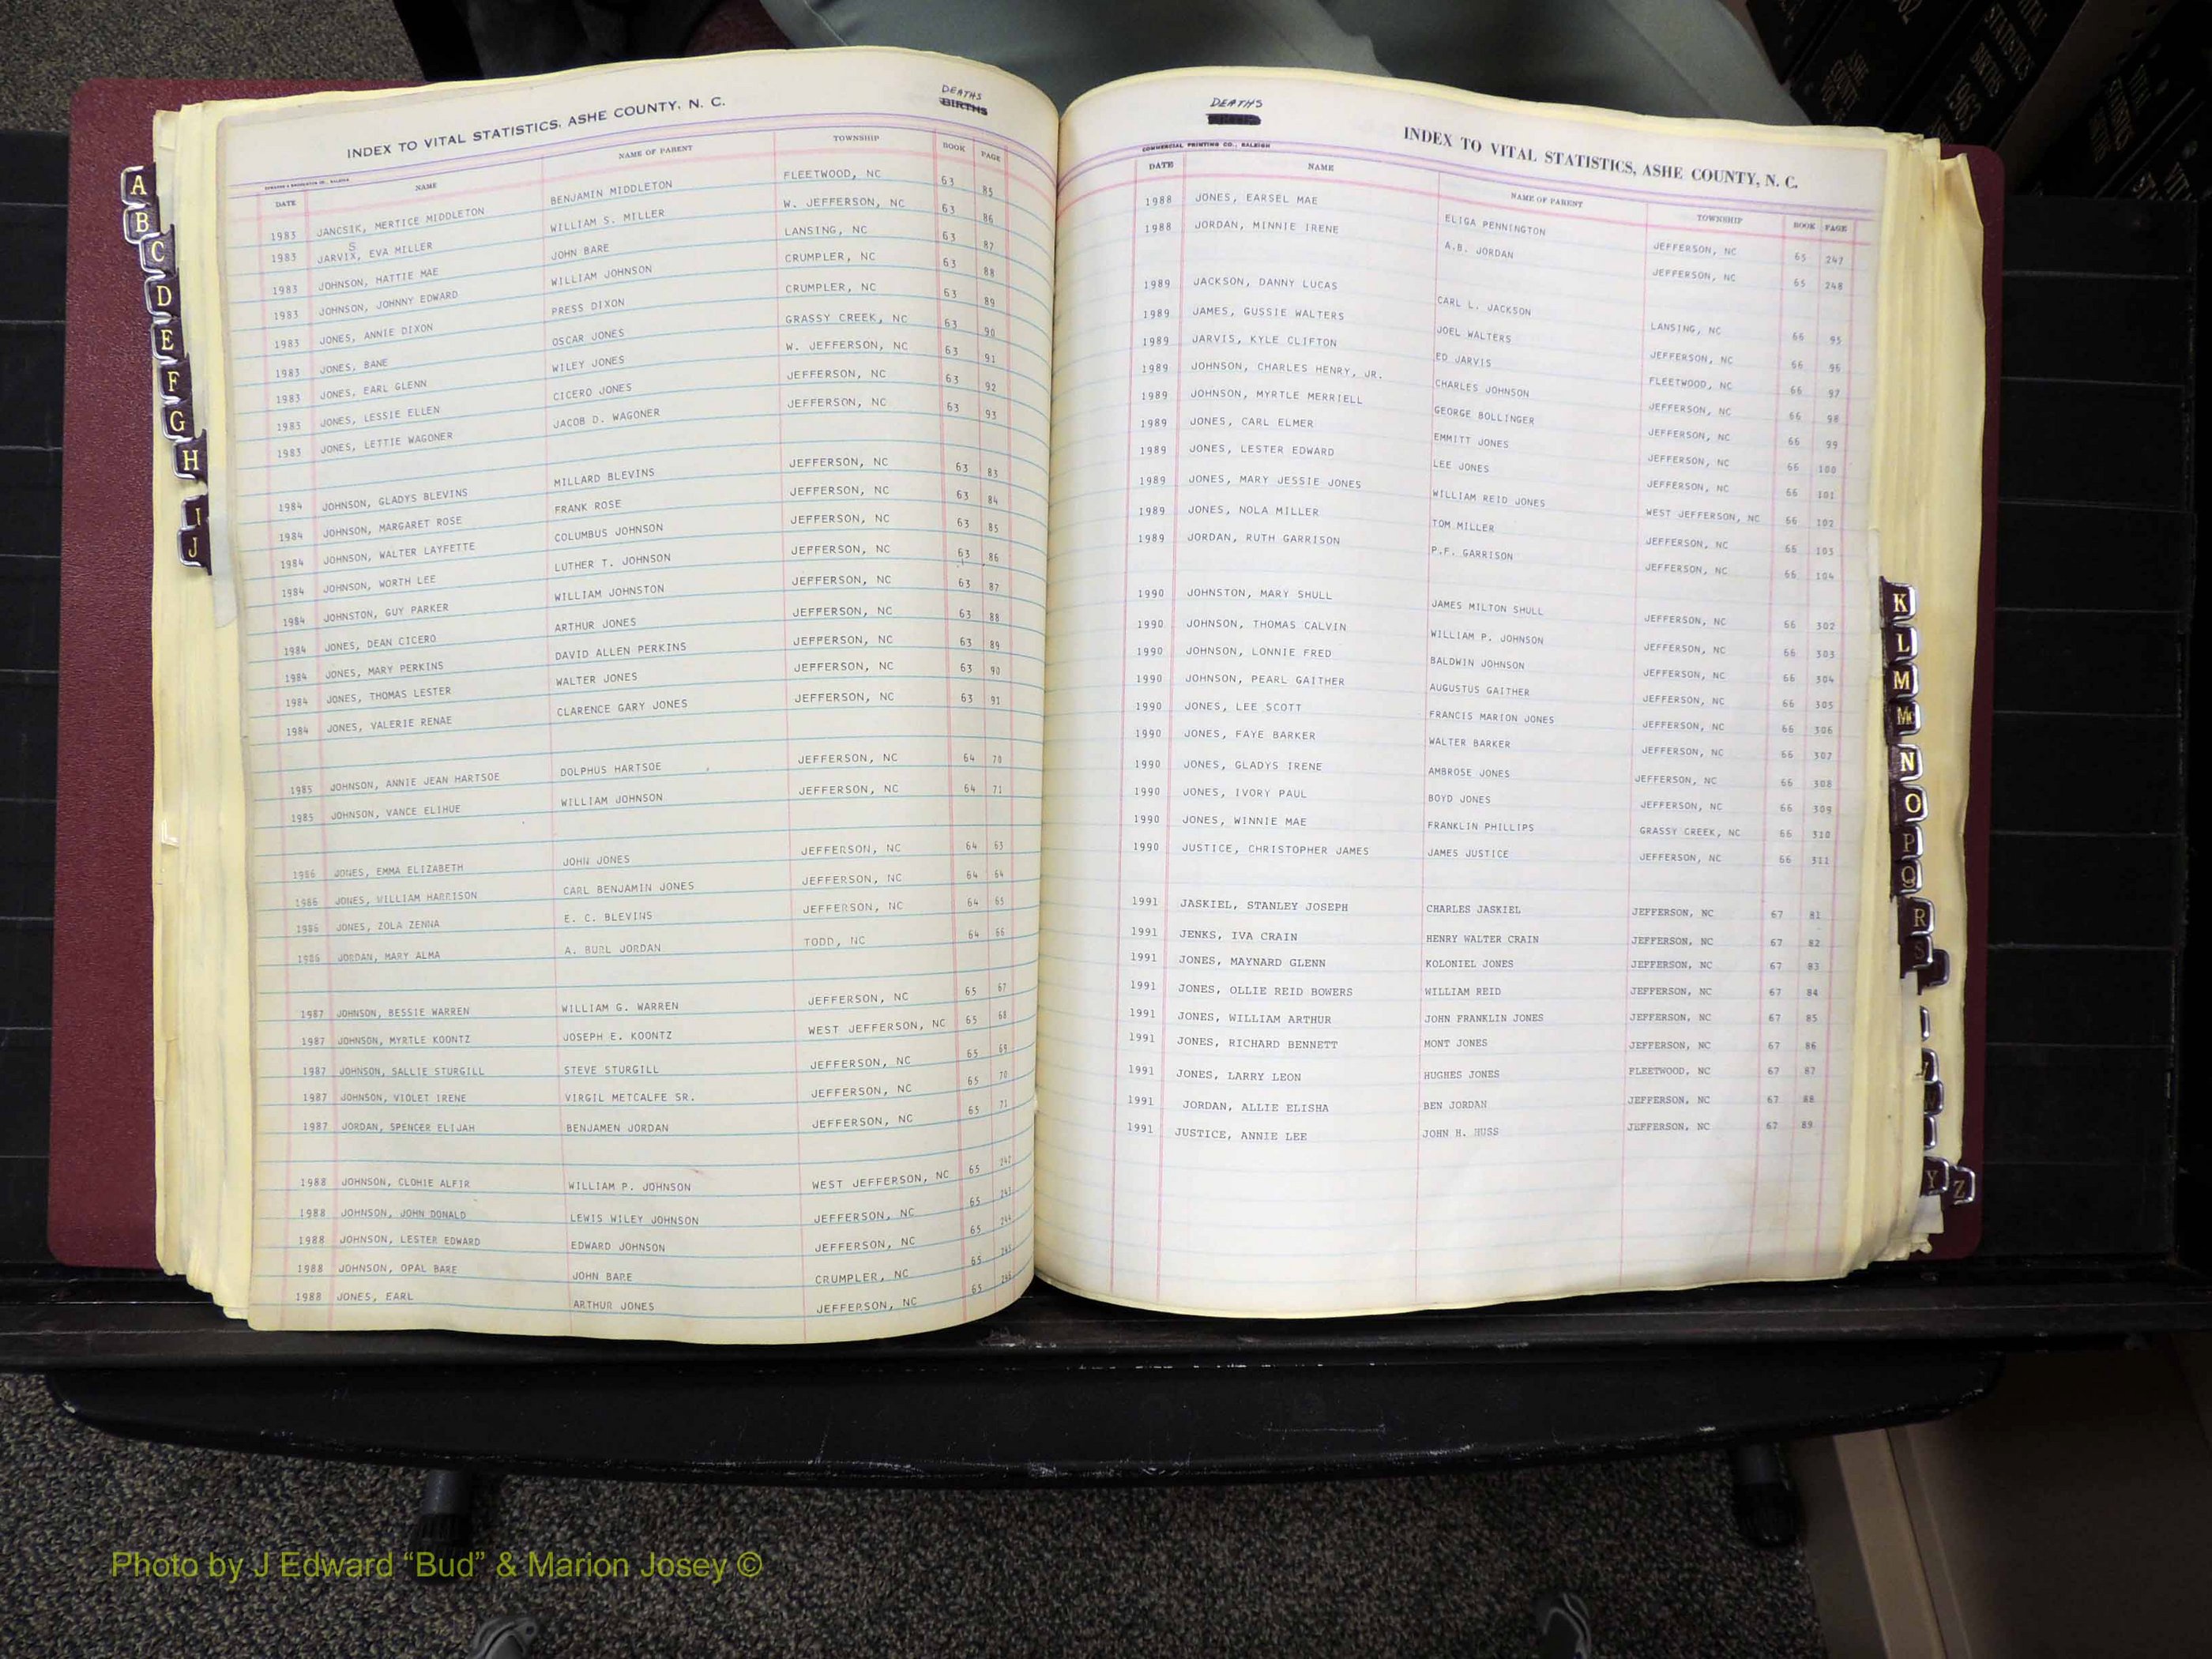 DEATHS
BIRTHS
INDEX TO VITAL STATISTICS, ASHE COUNTY, N. C.
DATE NAME NAME OF PARENT TOWNSHIP BOOK PAGE
1983 JANCSIK, MERTICE MIDDLETON BENJAMIN MIDDLETON FLEETWOOD, NC 63 85
S
1983 JARVIX, EVA MILLER WILLIAM S. MILLER W. JEFFERSON, NC 63 86
1983 JOHNSON, HATTIE MAE JOHN BARE LANSING, NC 63 87
1983 JOHNSON, JOHNNY EDWARD WILLIAM JOHNSON CRUMPLER, NC 63 88
1983 JONES, ANNIE DIXON PRESS DIXON CRUMPLER, NC 63 89
1983 JONES, BANE OSCAR JONES GRASSY CREEK, NC 63 90
1983 JONES, EARL GLENN WILEY JONES W. JEFFERSON, NC 63 91
1983 JONES, LESSIE ELLEN CICERO JONES JEFFERSON, NC 63 92
1983 JONES, LETTIE WAGONER JACOB D. WAGONER JEFFERSON, NC 63 93
1984 JOHNSON, GLADYS BLEVINS MILLARD BLEVINS JEFFERSON, NC 63 83
1984 JOHNSON, MARGARET ROSE FRANK ROSE JEFFERSON, NC 63 84
1984 JOHNSON, WALTER LAYFETTE COLUMBUS JOHNSON JEFFERSON, NC 63 85
1984 JOHNSON, WORTH LEE LUTHER T. JOHNSON JEFFERSON, NC 63 86
1984 JOHNSTON, GUY PARKER WILLIAM JOHNSTON JEFFERSON, NC 63 87
1984 JONES, DEAN CICERO ARTHUR JONES JEFFERSON, NC 63 88
1984 JONES, MARY PERKINS DAVID ALLEN PERKINS JEFFERSON, NC 63 89
1984 JONES, THOMAS LESTER WALTER JONES JEFFERSON, NC 63 90
1984 JONES, VALERIE RENAE CLARENCE GARY JONES JEFFERSON, NC 63 91
1985 JOHNSON, ANNIE JEAN HARTSOE DOLPHUS HARTSOE JEFFERSON, NC 64 70
1985 JOHNSON, VANCE ELIHUE WILLIAM JOHNSON JEFFERSON, NC 64 71
1986 JONES, EMMA ELIZABETH JOHN JONES JEFFERSON, NC 64 63
1986 JONES, WILLIAM HARRISON CARL BENJAMIN JONES JEFFERSON, NC 64 64
1986 JONES, ZOLA ZENNA E. C. BLEVINS JEFFERSON, NC 64 65
1986 JORDAN, MARY ALMA A. BURL JORDAN TODD, NC 64 66
1987 JOHNSON, BESSIE WARREN WILLIAM G. WARREN JEFFERSON, NC 65 67
1987 JOHNSON, MYRTLE KOONTZ JOSEPH E. KOONTZ WEST JEFFERSON, NC 65 68
1987 JOHNSON, SALLIE STURGILL STEVE STURGILL JEFFERSON, NC 65 69
1987 JOHNSON, VIOLET IRENE VIRGIL METCALFE SR. JEFFERSON, NC 65 70
1987 JORDAN, SPENCER ELIJAH BENJAMEN JORDAN JEFFERSON, NC 65 71
1988 JOHNSON, CLOHIE ALFIR WILLIAM P. JOHNSON WEST JEFFERSON, NC 65 242
1988 JOHNSON, JOHN DONALD LEWIS WILEY JOHNSON JEFFERSON, NC 65 243
1988 JOHNSON, LESTER EDWARD EDWARD JOHNSON JEFFERSON, NC 65 244
1988 JOHNSON, OPAL BARE JOHN BARE CRUMPLER, NC 65 245
1988 JONES, EARL ARTHUR JONES JEFFERSON, NC 65 246
DEATHS
COMMERCIAL PRINTING CO., RALEIGH
INDEX TO VITAL STATISTICS, ASHE COUNTY, N. C.
DATE NAME NAME OF PARENT TOWNSHIP BOOK PAGE
1988 JONES, EARSEL MAE ELIGA PENNINGTON JEFFERSON, NC 65 247
1988 JORDAN, MINNIE IRENE A.B. JORDAN JEFFERSON, NC 65 248
1989 JACKSON, DANNY LUCAS CARL L. JACKSON LANSING, NC 66 95
1989 JAMES, GUSSIE WALTERS JOEL WALTERS JEFFERSON, NC 66 96
1989 JARVIS, KYLE CLIFTON ED JARVIS FLEETWOOD, NC 66 97
1989 JOHNSON, CHARLES HENRY, JR. CHARLES JOHNSON JEFFERSON, NC 66 98
1989 JOHNSON, MYRTLE MERRIELL GEORGE BOLLINGER JEFFERSON, NC 66 99
1989 JONES, CARL ELMER EMMITT JONES JEFFERSON, NC 66 100
1989 JONES, LESTER EDWARD LEE JONES JEFFERSON, NC 66 101
1989 JONES, MARY JESSIE JONES WILLIAM REID JONES WEST JEFFERSON, NC 66 102
1989 JONES, NOLA MILLER TOM MILLER JEFFERSON, NC 66 103
1989 JORDAN, RUTH GARRISON P.F. GARRISON JEFFERSON, NC 66 104
1990 JOHNSTON, MARY SHULL JAMES MILTON SHULL JEFFERSON, NC 66 302
1990 JOHNSON, THOMAS CALVIN WILLIAM P. JOHNSON JEFFERSON, NC 66 303
1990 JOHNSON, LONNIE FRED BALDWIN JOHNSON JEFFERSON, NC 66 304
1990 JOHNSON, PEARL GAITHER AUGUSTUS GAITHER JEFFERSON, NC 66 305
1990 JONES, LEE SCOTT FRANCIS MARION JONES JEFFERSON, NC 66 306
1990 JONES, FAYE BARKER WALTER BARKER JEFFERSON, NC 66 307
1990 JONES, GLADYS IRENE AMBROSE JONES JEFFERSON, NC 66 308
1990 JONES, IVORY PAUL BOYD JONES JEFFERSON, NC 66 309
1990 JONES, WINNIE MAE FRANKLIN PHILLIPS GRASSY CREEK, NC 66 310
1990 JUSTICE, CHRISTOPHER JAMES JAMES JUSTICE JEFFERSON, NC 66 311
1991 JASKIEL, STANLEY JOSEPH CHARLES JASKIEL JEFFERSON, NC 67 81
1991 JENKS, IVA CRAIN HENRY WALTER CRAIN JEFFERSON, NC 67 82
1991 JONES, MAYNARD GLENN KOLONIEL JONES JEFFERSON, NC 67 83
1991 JONES, OLLIE REID BOWERS WILLIAM REID JEFFERSON, NC 67 84
1991 JONES, WILLIAM ARTHUR JOHN FRANKLIN JONES JEFFERSON, NC 67 85
1991 JONES, RICHARD BENNETT MONT JONES JEFFERSON, NC 67 86
1991 JONES, LARRY LEON HUGHES JONES FLEETWOOD, NC 67 87
1991 JORDAN, ALLIE ELISHA BEN JORDAN JEFFERSON, NC 67 88
1991 JUSTICE, ANNIE LEE JOHN H. HUSS JEFFERSON, NC 67 89
A
B
C
D
E
F
G
H
I
J
K
L
M
Mc
N
O
P
Q
R
S
Y
Z
VITAL STATISTICS BIRTHS 1963
Photo by J Edward “Bud” & Marion Josey ©